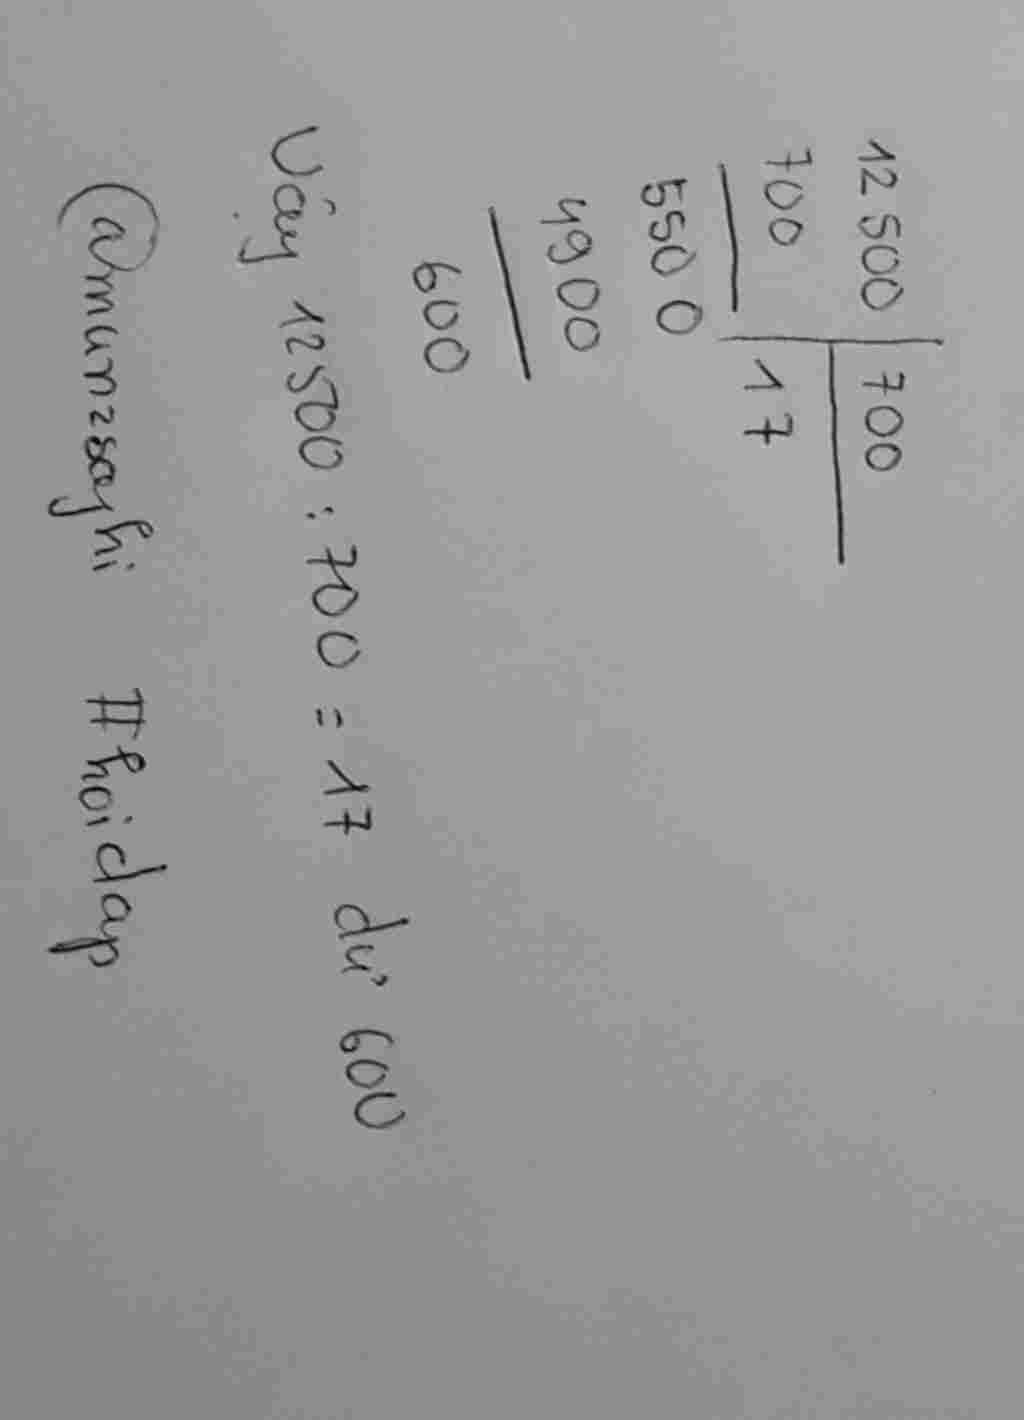 12 500 | 700
700 | 17
5500
4900
600
Vậy 12500 : 700 = 17 dư 600
@munzsayhi #hoidap